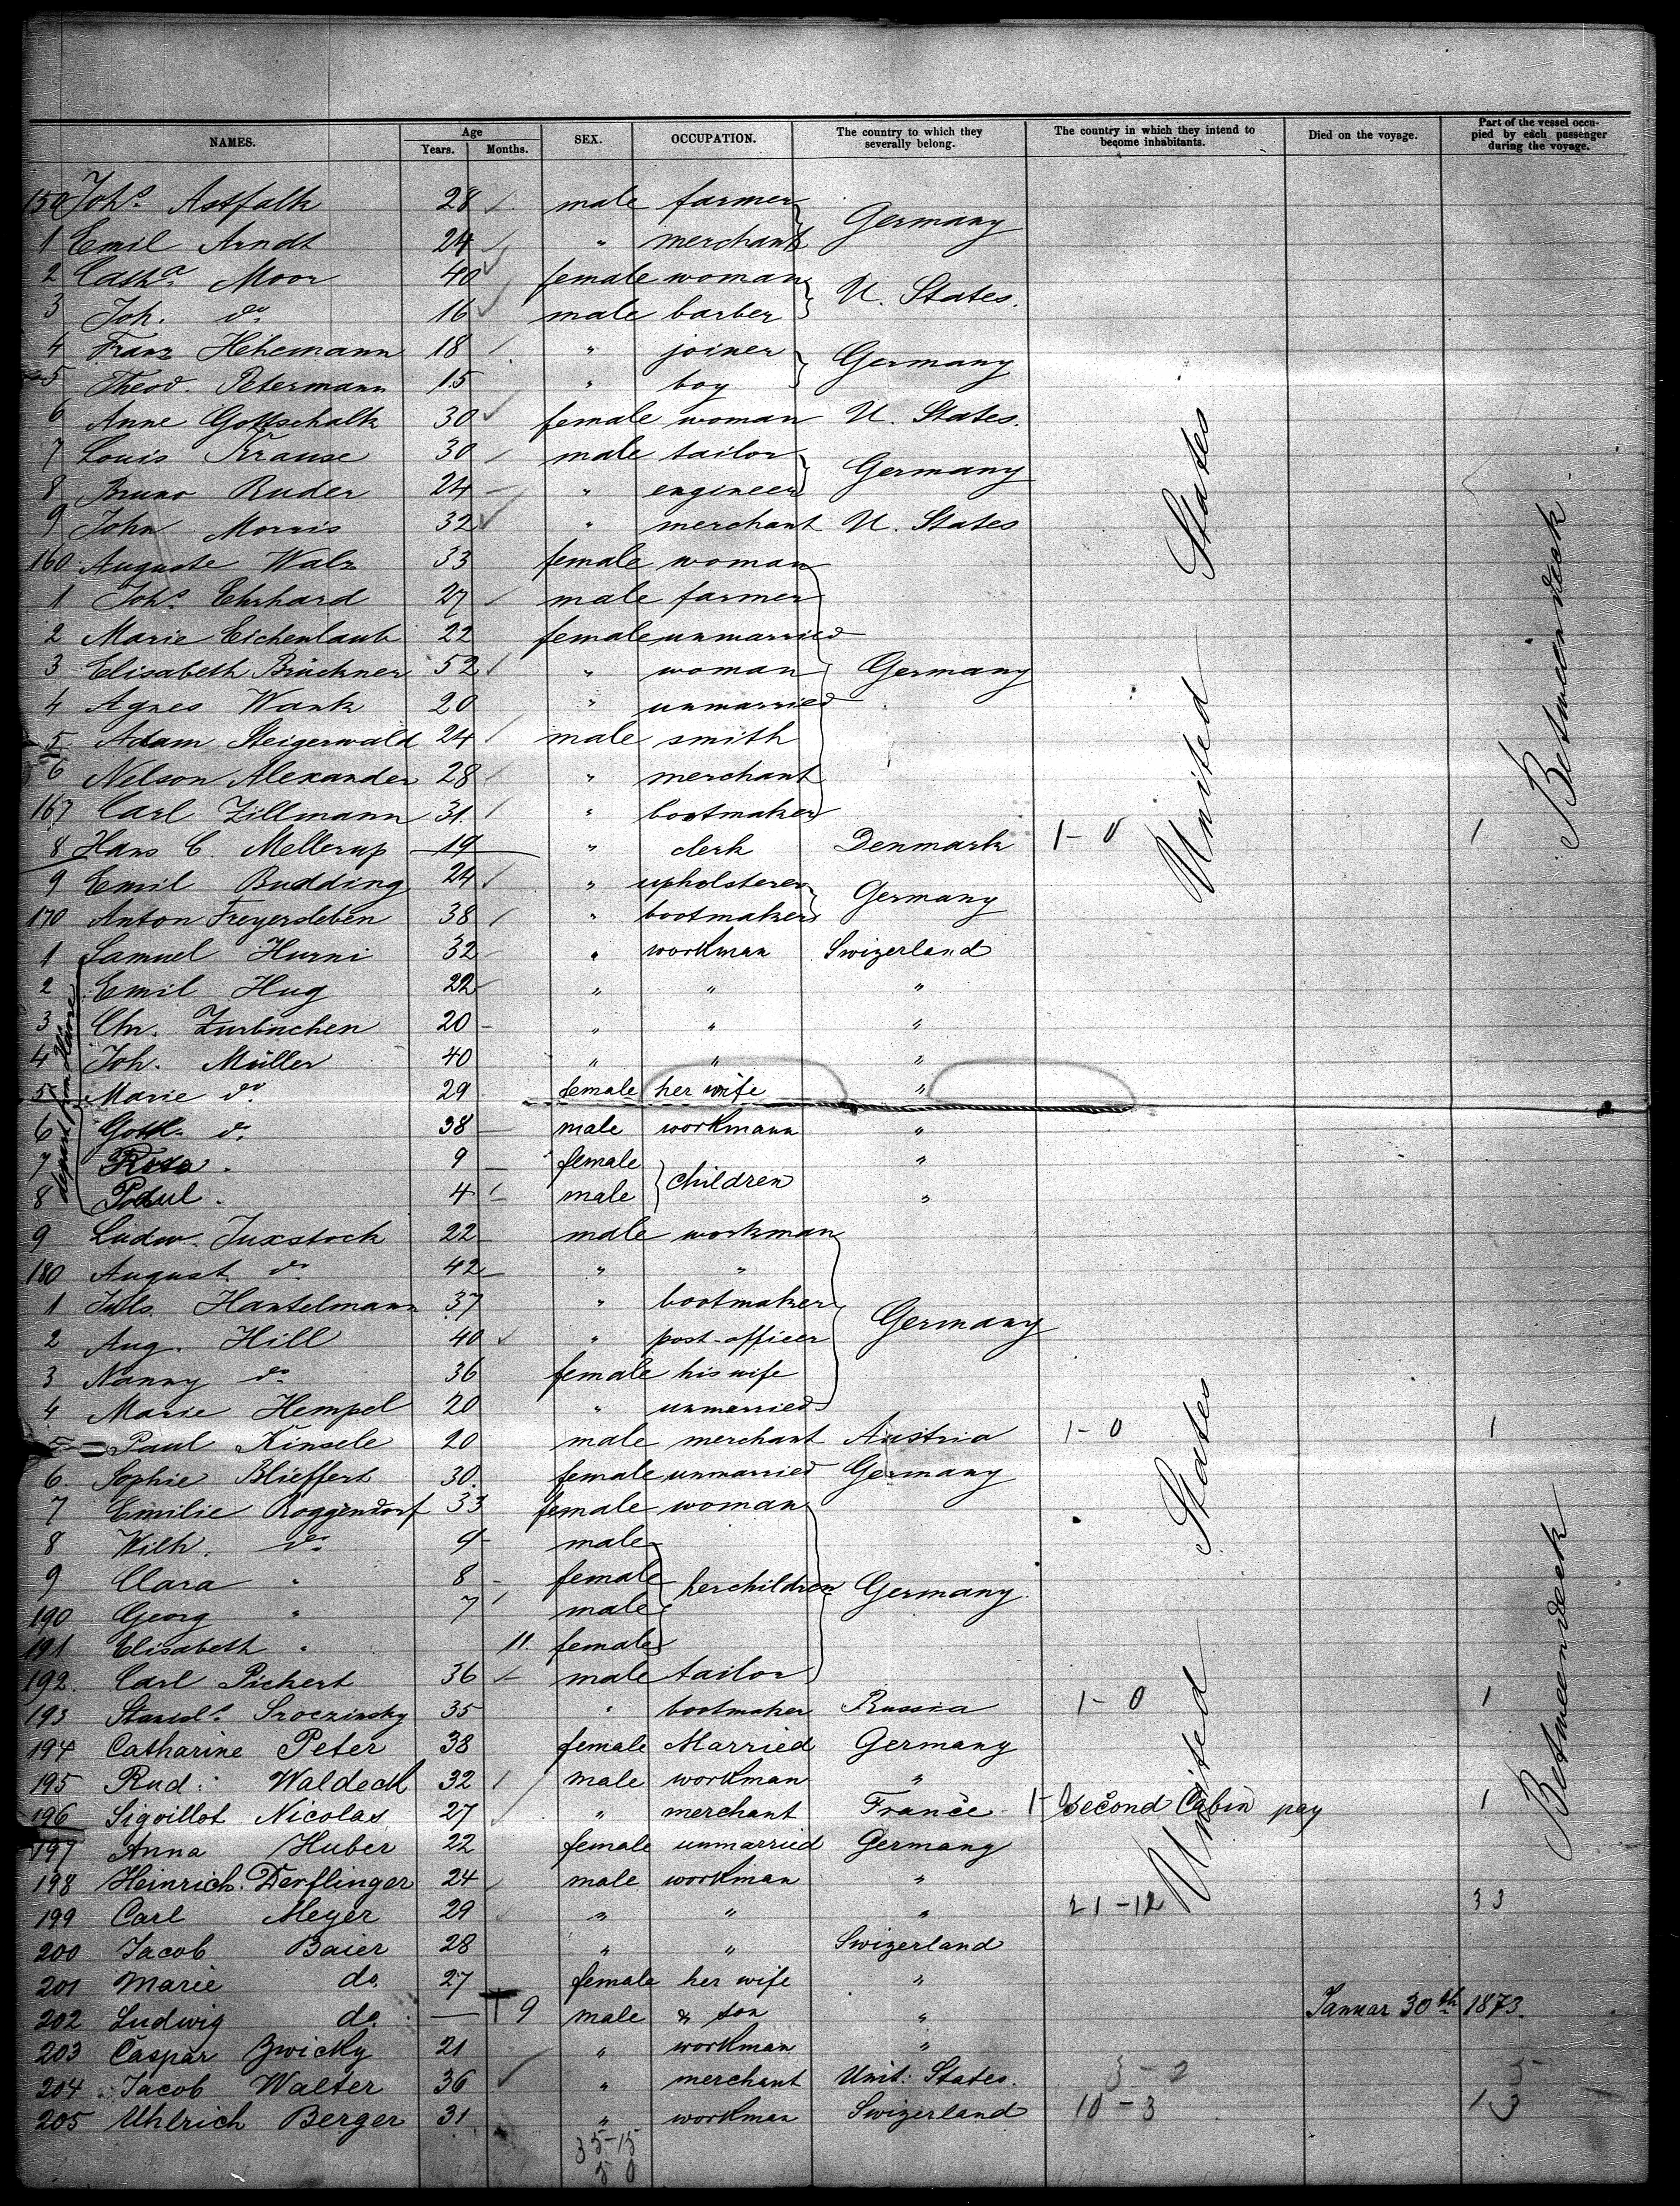 NAMES. Age Years. Months. SEX. OCCUPATION. The country to which they severally belong. The country in which they intend to become inhabitants. Died on the voyage. Part of the vessel occupied by each passenger during the voyage.
150 Johs. Astfalk 28 male farmer Germany
1 Emil Arndt 24 " merchant
2 Catha. Moor 40 female woman U. States.
3 Joh. do 16 male barber
4 Franz Hehemann 18 " joiner Germany
5 Theod. Petermann 15 " boy
6 Anne Gottschalk 30 female woman U. States.
7 Louis Krause 30 male tailor Germany
8 Bruno Ruder 24 " engineer
9 John Morris 32 " merchant U. States
160 Auguste Walz 33 female woman
1 Johs. Ehrhard 27 male farmer
2 Marie Eichenlaub 22 female unmarried
3 Elisabeth Brückner 52 " woman Germany
4 Agnes Wank 20 " unmarried
5 Adam Steigerwald 24 male smith
6 Nelson Alexander 28 " merchant
167 Carl Zillmann 31 " bootmaker
8 Hans C. Mellerup 19 " clerk Denmark 1-0 1
9 Emil Budding 24 " upholsterer Germany
170 Anton Freyersleben 38 " bootmaker
1 Samuel Hurni 32 " workman Swizerland
2 Emil Hug 22 " " "
3 Chr. Zurbuchen 20 " " "
4 Joh. Müller 40 " " "
5 Marie do. 29 female her wife "
6 Gottl. do. 38 male workmann "
7 Rosa. 9 female children "
8 Paul. 4 male "
9 Ludw. Juxstock 22 male workman
180 August do 42 " "
1 Juls. Hantelmann 37 " bootmaker Germany
2 Aug. Hill 40 " post-officer
3 Nanny do 36 female his wife
4 Marie Hempel 20 " unmarried
5 Paul Kinsele 20 male merchant Austria 1-0 1
6 Sophie Blieffert 30 female unmarried Germany
7 Emilie Roggendorf 33 female woman
8 Wilh. do. 9 male
9 Clara " 8 female her children Germany
190 Georg " 7 male
191 Elisabeth " 11. female
192. Carl Pickert 36 male tailor
193 Sroczinsky 35 " bootmaker Russia 1-0 1
194 Catharine Peter 38 female Married Germany
195 Rud: Waldeck 32 male workman "
196 Sigoillot Nicolas 27 " merchant France 1- Second Cabin pay 1
197 Anna Huber 22 female unmarried Germany
198 Heinrich. Derflinger 24 male workman "
199 Carl Meyer 29 " " " 21-12 33
200 Jacob Baier 28 " " Swizerland
201 Marie do. 27 female her wife "
202 Ludwig do. — † 9 male & son " Januar 30th 1873.
203 Caspar Zwicky 21 " workman "
204 Jacob Walter 36 " merchant Unit: States. 3-2 5
205 Uhlrich Berger 31 " workman Swizerland 10-3 13
35-15
5 0
United States
United States
Betweendeck
Betweendeck